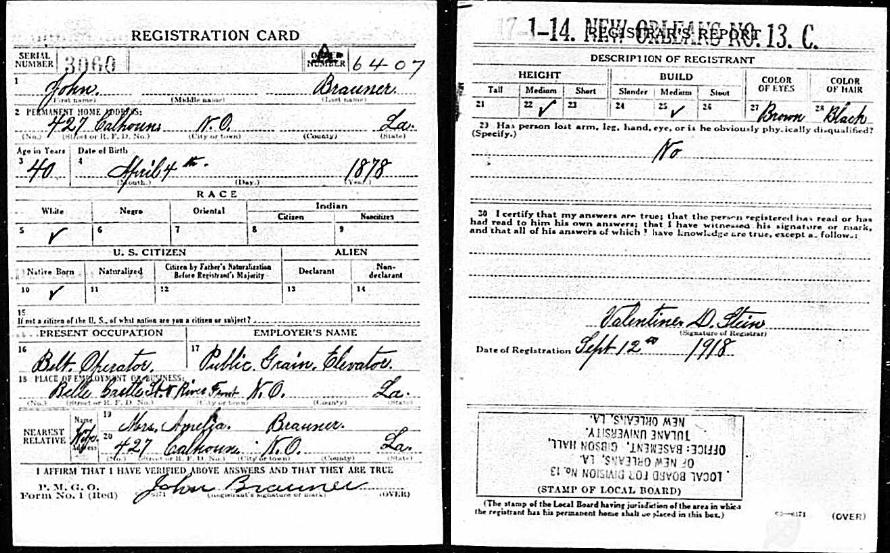 REGISTRATION CARD
SERIAL NUMBER 3060 ORDER NUMBER A 6407
1 John Brauner
(First name) (Middle name) (Last name)
2 PERMANENT HOME ADDRESS:
427 Calhoun N.O. La.
(No.) (Street or R. F. D. No.) (City or town) (County) (State)
Age in Years Date of Birth
3 40 4 April 4th 1878
(Month.) (Day.) (Year.)
RACE
White Negro Oriental Indian
Citizen Noncitizen
5 ✓ 6 7 8 9
U. S. CITIZEN ALIEN
Native Born Naturalized Citizen by Father's Naturalization Before Registrant's Majority Declarant Non-declarant
10 ✓ 11 12 13 14
15
If not a citizen of the U. S., of what nation are you a citizen or subject?
PRESENT OCCUPATION EMPLOYER'S NAME
16 Belt Operator. 17 Public Grain Elevator.
18 PLACE OF EMPLOYMENT OR BUSINESS:
Belle Castle St & River Front N.O. La.
(No.) (Street or R. F. D. No.) (City or town) (County) (State)
NEAREST RELATIVE Name 19 Mrs. Amelia Brauner.
Address 20 427 Calhoun N.O. La.
(No.) (Street or R. F. D. No.) (City or town) (County) (State)
I AFFIRM THAT I HAVE VERIFIED ABOVE ANSWERS AND THAT THEY ARE TRUE
P. M. G. O.
Form No. 1 (Red) John Brauner
(Registrant's signature or mark) (OVER)
17-1-14. NEW ORLEANS NO. 13. C.
REGISTRAR'S REPORT
DESCRIPTION OF REGISTRANT
HEIGHT BUILD COLOR OF EYES COLOR OF HAIR
Tall Medium Short Slender Medium Stout
21 22 ✓ 23 24 25 ✓ 26 27 Brown 28 Black
29 Has person lost arm, leg, hand, eye, or is he obviously physically disqualified?
(Specify.)
No
30 I certify that my answers are true; that the person registered has read or has
had read to him his own answers; that I have witnessed his signature or mark,
and that all of his answers of which I have knowledge are true, except as follows:
Valentine D. Stein
(Signature of Registrar)
Date of Registration Sept 12th 1918
LOCAL BOARD FOR DIVISION No 13
OF NEW ORLEANS, LA.
OFFICE: BASEMENT, GIBSON HALL
TULANE UNIVERSITY.
NEW ORLEANS, LA.
(STAMP OF LOCAL BOARD)
(The stamp of the Local Board having jurisdiction of the area in which
the registrant has his permanent home shall be placed in this box.)
(OVER)